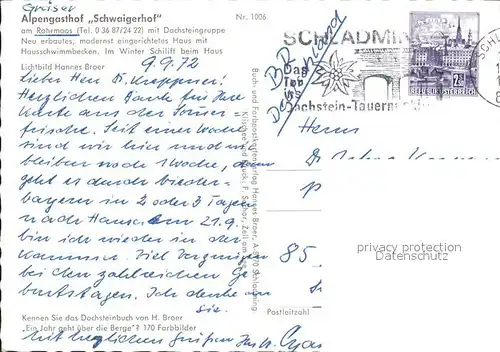 Grüße
Alpengasthof „Schwaigerhof"
am Rohrmoos (Tel. 0 36 87/24 22) mit Dachsteingruppe
Neu erbautes, modernst eingerichtetes Haus mit
Hausschwimmbecken. Im Winter Schilift beim Haus
Lichtbild Hannes Broer
Nr. 1006
9.9.72
Lieber Herr D.
Herzlichen Dank für Ihre
Karte aus der Sommer-
frische. Seit einer Woche
sind wir hier und
bleiben noch Woche, dann
geht es durch Nieder-
bayern in 2 oder 3 Tagen
nach Hause. Am 21.9.
bin ich wieder in der
Kammer. Viel Vergnügen
bei den zahlreichen Ge-
burtstagen. Ich denke an
sie.
Kennen Sie das Dachsteinbuch von H. Broer
„Ein Jahr geht über die Berge"? 170 Farbbilder
Mit herzlichen Grüßen Ihr
Buch- und Farbpostkartenverlag Hannes Broer, A-8970 Schladming
Klischee und Druck: F. Sochor, Zell am See
SCHLADMING
Das
Tor
zur
Dachstein-Tauern
REPUBLIK ÖSTERREICH
BRD
Deutschland
Herrn
Dr.
85
Postleitzahl
privacy protection
Datenschutz